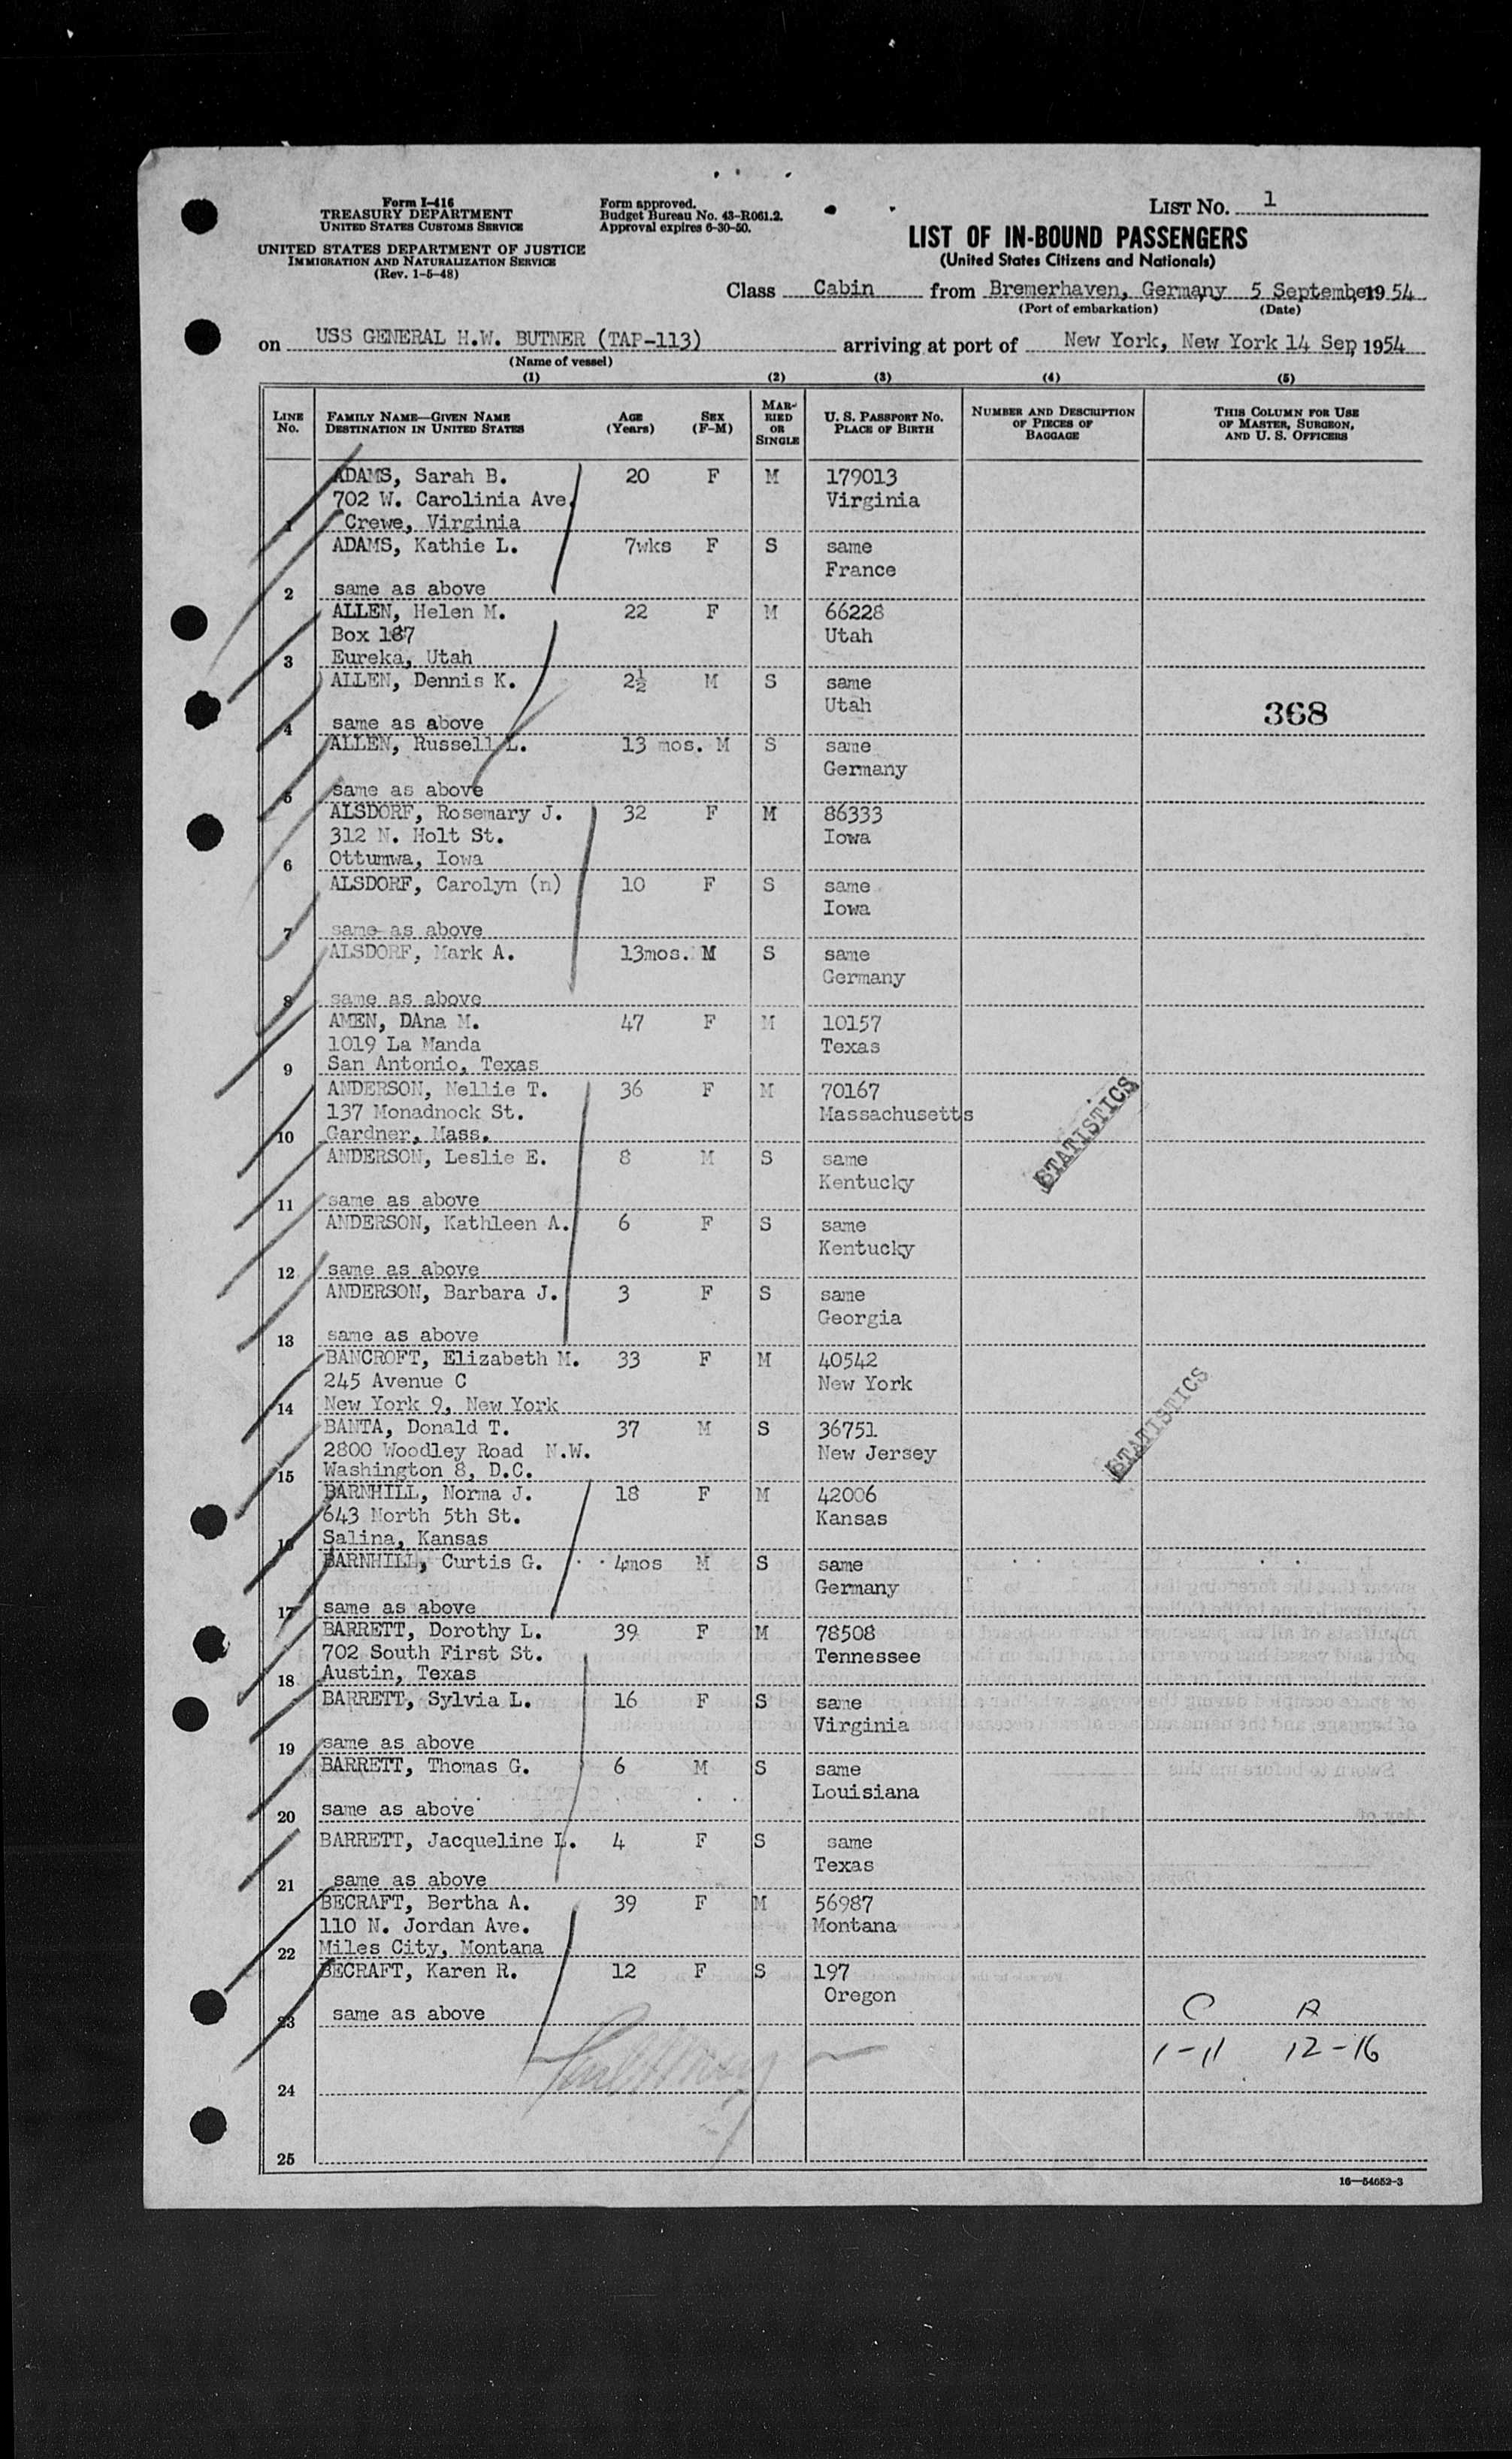 Form I-416
TREASURY DEPARTMENT
UNITED STATES CUSTOMS SERVICE
UNITED STATES DEPARTMENT OF JUSTICE
IMMIGRATION AND NATURALIZATION SERVICE
(Rev. 1-5-48)
Form approved.
Budget Bureau No. 43-R061.2.
Approval expires 6-30-50.
LIST NO. 1
LIST OF IN-BOUND PASSENGERS
(United States Citizens and Nationals)
Class Cabin from Bremerhaven, Germany 5 September 1954
(Port of embarkation) (Date)
on USS GENERAL H.W. BUTNER (TAP-113) arriving at port of New York, New York 14 Sep, 1954
(Name of vessel)
(1) (2) (3) (4) (5)
LINE NO. FAMILY NAME—GIVEN NAME DESTINATION IN UNITED STATES AGE (Years) SEX (F-M) MARRIED OR SINGLE U. S. PASSPORT NO. PLACE OF BIRTH NUMBER AND DESCRIPTION OF PIECES OF BAGGAGE THIS COLUMN FOR USE OF MASTER, SURGEON, AND U. S. OFFICERS
ADAMS, Sarah B. 20 F M 179013
702 W. Carolinia Ave. Virginia
1 Crewe, Virginia
ADAMS, Kathie L. 7wks F S same
France
2 same as above
ALLEN, Helen M. 22 F M 66228
Box 187 Utah
3 Eureka, Utah
ALLEN, Dennis K. 2½ M S same
Utah
4 same as above 368
ALLEN, Russell L. 13 mos. M S same
Germany
5 same as above
ALSDORF, Rosemary J. 32 F M 86333
312 N. Holt St. Iowa
6 Ottumwa, Iowa
ALSDORF, Carolyn (n) 10 F S same
Iowa
7 same as above
ALSDORF, Mark A. 13mos. M S same
Germany
8 same as above
AMEN, DAna M. 47 F M 10157
1019 La Manda Texas
9 San Antonio, Texas
ANDERSON, Nellie T. 36 F M 70167
137 Monadnock St. Massachusetts
10 Gardner, Mass.
STATISTICS
ANDERSON, Leslie E. 8 M S same
Kentucky
11 same as above
ANDERSON, Kathleen A. 6 F S same
Kentucky
12 same as above
ANDERSON, Barbara J. 3 F S same
Georgia
13 same as above
BANCROFT, Elizabeth M. 33 F M 40542
245 Avenue C New York
14 New York 9, New York
STATISTICS
BANTA, Donald T. 37 M S 36751
2800 Woodley Road N.W. New Jersey
15 Washington 8, D.C.
BARNHILL, Norma J. 18 F M 42006
643 North 5th St. Kansas
16 Salina, Kansas
BARNHILL, Curtis G. 4mos M S same
Germany
17 same as above
BARRETT, Dorothy L. 39 F M 78508
702 South First St. Tennessee
18 Austin, Texas
BARRETT, Sylvia L. 16 F S same
Virginia
19 same as above
BARRETT, Thomas G. 6 M S same
Louisiana
20 same as above
BARRETT, Jacqueline L. 4 F S same
Texas
21 same as above
BECRAFT, Bertha A. 39 F M 56987
110 N. Jordan Ave. Montana
22 Miles City, Montana
BECRAFT, Karen R. 12 F S 197
Oregon
23 same as above
C A
1-11 12-16
24
25
16—54652-3